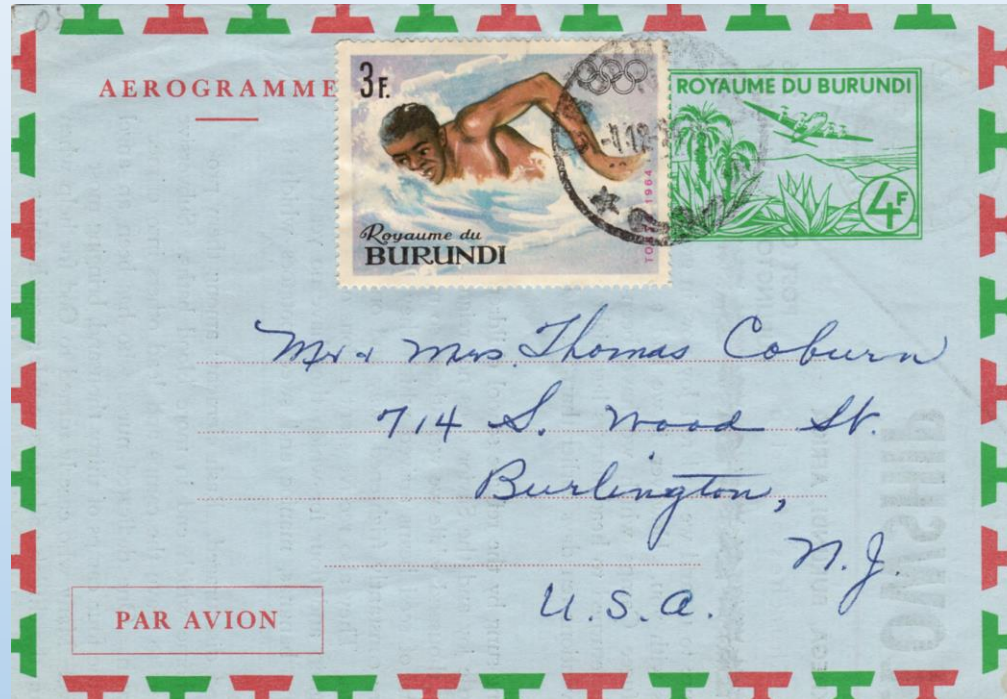 AEROGRAMME
3 F.
Royaume du
BURUNDI
1964
ROYAUME DU BURUNDI
4F
Mr & Mrs. Thomas Coburn
714 S. Wood St.
Burlington,
N.J.
U.S.A.
PAR AVION